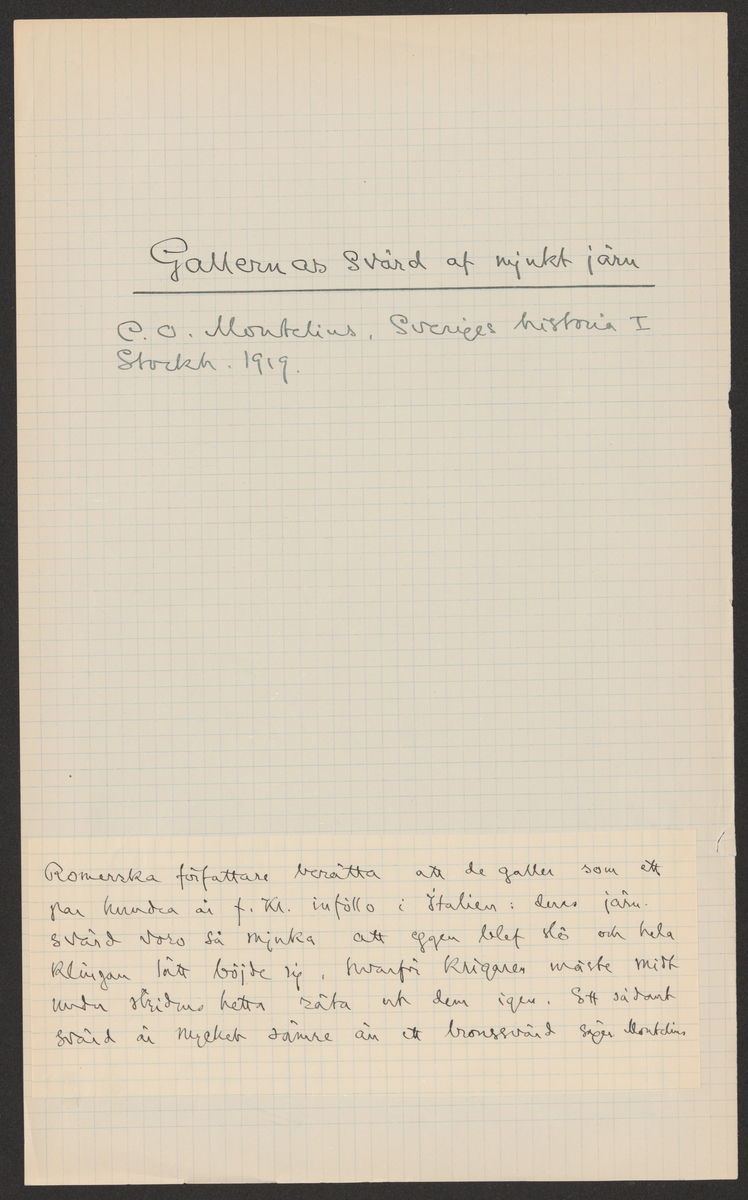 Gallernas svärd af mjukt järn
C. O. Montelius, Sveriges historia I
Stockh. 1919.
Romerska författare berätta att de galler som ett
par hundra år f. Kr. inföllo i Italien: deras järn-
svärd voro så mjuka att eggen blef slö och hela
klingan lätt böjde sig, hvarför krigaren måste midt
under stridens hetta räta ut dem igen. Ett sådant
svärd är mycket sämre än ett bronssvärd säger Montelius